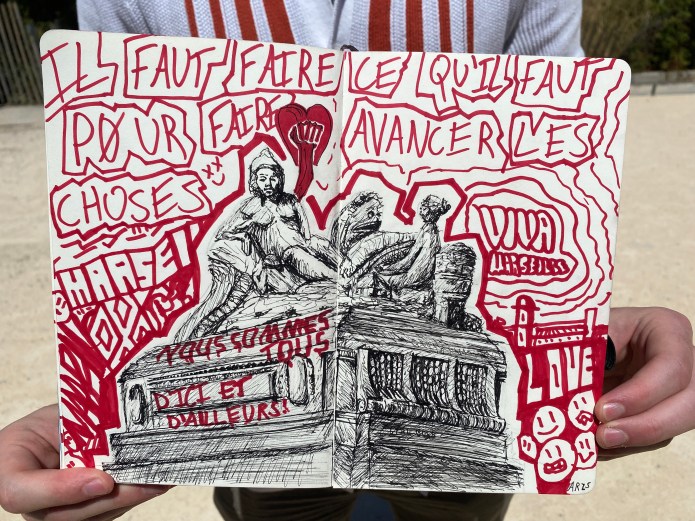 IL FAUT FAIRE CE QU'IL FAUT
PØUR FAIRE AVANCER LES
CHOSES
VIVA
MARSEILLE
MARSEI
LOVE
NOUS SOMMES
TOUS
D'ICI ET
D'AILLEURS!
AR25